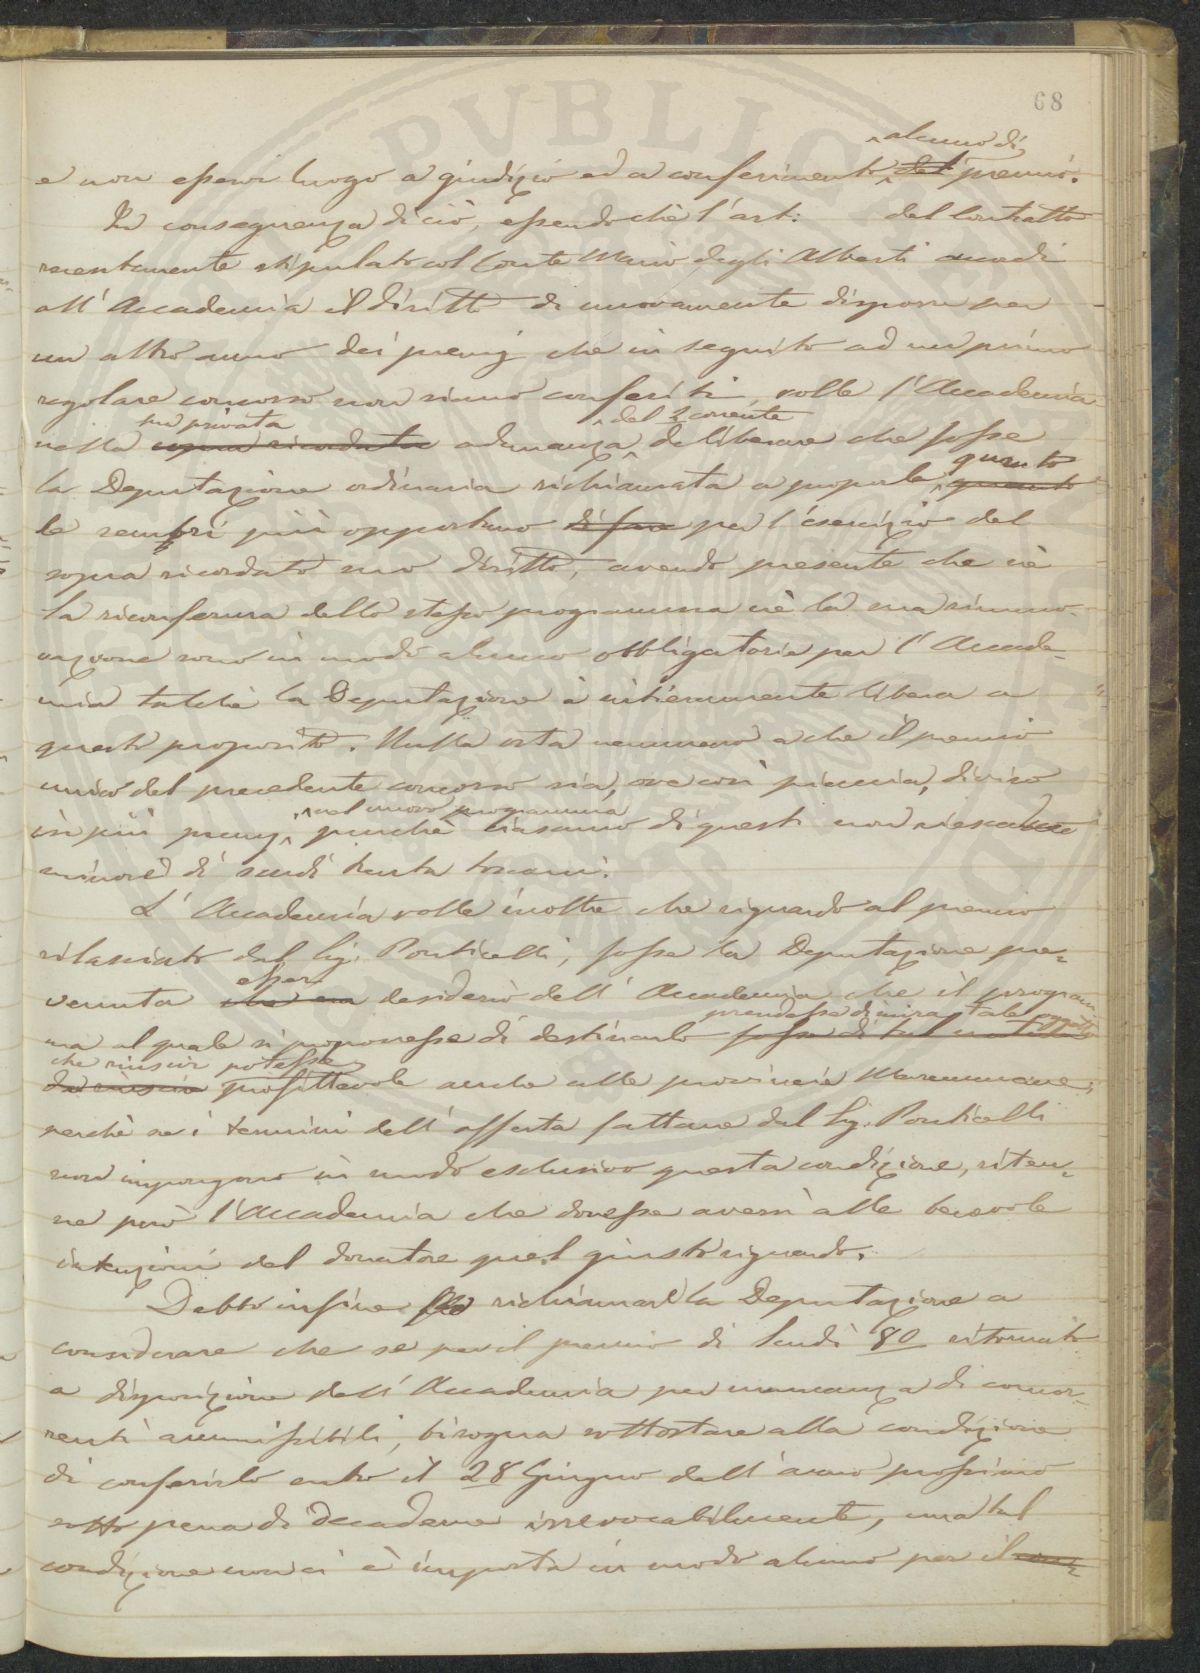 68
e non esservi luogo a giudizio ed a conferimento alcuno di del premio.
In conseguenza di ciò, essendochè l'art: del Contratto
recentemente stipulato col Conte Mario degli Alberti accordi
all'Accademia il diritto di nuovamente disporre per
un altro anno dei premj che in seguito ad un primo
regolare concorso non sieno conferiti, volle l'Accademia
nella sua privata sopra ricordata adunanza del 2 corrente deliberare che fosse
la Deputazione ordinaria richiamata a proporle quanto quanto
le sembri più opportuno di fare per l'esercizio del
sopra ricordato suo diritto, avendo presente che nè
la riconferma dello stesso programma nè la sua rinno-
vazione sono in modo alcuno obbligatorie per l'Accade-
mia talchè la Deputazione è intieramente libera a
questo proposito. Nulla osta nemmeno a che il premio
unico del precedente concorso sia, ove così piaccia, diviso
in più premj nel nuovo programma purchè ciascuno di questi non riesca
minore di scudi trenta toscani.
L'Accademia volle inoltre che riguardo al premio
rilasciato dal Sig. Ponticelli, fosse la Deputazione pre-
venuta esser che era desiderio dell'Accademia che il program
ma al quale si proponesse di destinarlo prendesse di mira tale oggetto fosse di tal
che riuscir potesse da riuscire profittevole anche alle provincie Maremmane;
perchè se i termini dell'offerta fattane dal Sig. Ponticelli
non impongono in modo esclusivo questa condizione, riten-
ne però l'Accademia che dovesse aversi alle benevole
intenzioni del donatore quel giusto riguardo.
Debbo infine richiamare la Deputazione a
considerare che se per il premio di Scudi 80 ritornato
a disposizione dell'Accademia per mancanza di concor-
renti ammissibili, bisogna sottostare alla condizione
di conferirlo entro il 28 Giugno dell'anno prossimo
sotto pena di decaderne irrevocabilmente, una tal
condizione non ci è imposta in modo alcuno per il